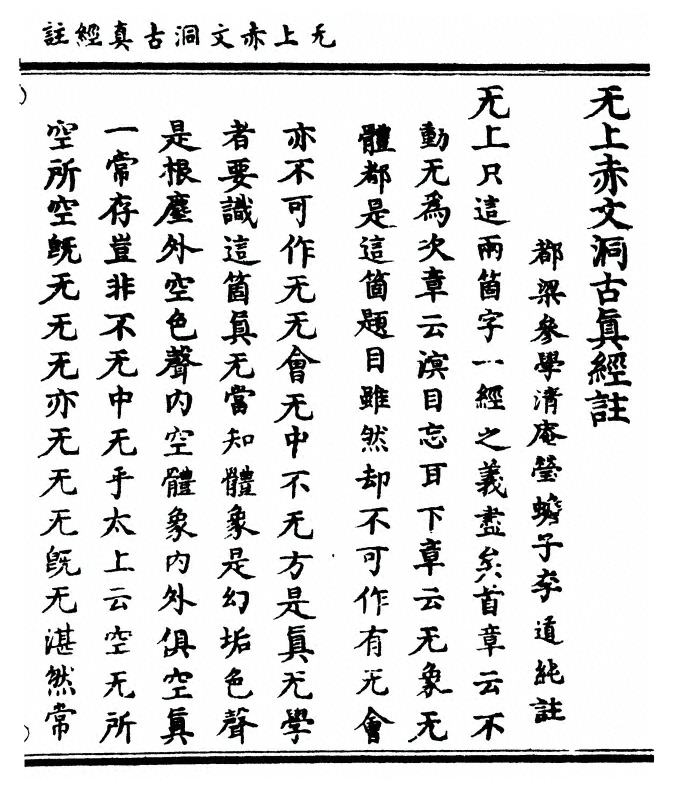 无上赤文洞古真經註
无上赤文洞古眞經註
都梁參學清庵瑩蟾子李道純註
无上只這兩箇字一經之義盡矣首章云不
動无爲次章云溟目忘耳下章云无象无
體都是這箇題目雖然却不可作有无會
亦不可作无无會无中不无方是眞无學
者要識這箇眞无當知體象是幻垢色聲
是根塵外空色聲內空體象內外俱空眞
一常存豈非不无中无乎太上云空无所
空所空旣无无无亦无无无旣无湛然常